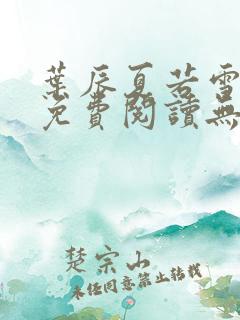 葉辰夏若雪
免費閱讀無
楚宗山
未经同意禁止转载